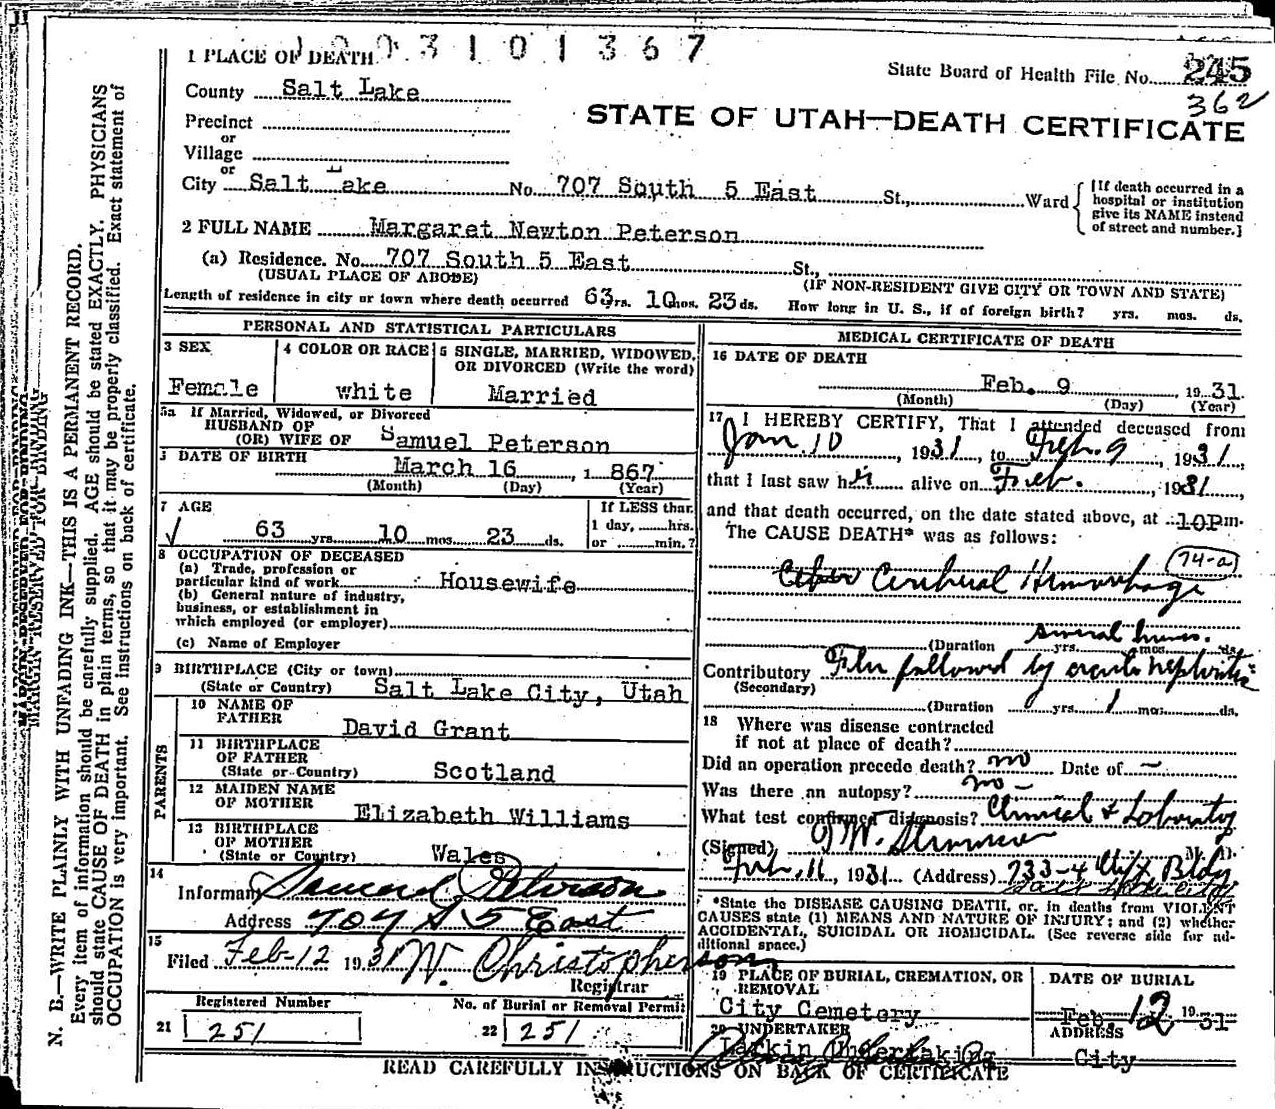 1003101367
1 PLACE OF DEATH
State Board of Health File No. 245
362
County Salt Lake
STATE OF UTAH—DEATH CERTIFICATE
Precinct
or
Village
or
City Salt Lake No. 707 South 5 East St., Ward
[If death occurred in a hospital or institution give its NAME instead of street and number.]
2 FULL NAME Margaret Newton Peterson
(a) Residence. No. 707 South 5 East St.,
(USUAL PLACE OF ABODE) (IF NON-RESIDENT GIVE CITY OR TOWN AND STATE)
Length of residence in city or town where death occurred 63 yrs. 10 mos. 23 ds. How long in U. S., if of foreign birth? yrs. mos. ds.
PERSONAL AND STATISTICAL PARTICULARS
3 SEX
Female
4 COLOR OR RACE
white
5 SINGLE, MARRIED, WIDOWED,
OR DIVORCED (Write the word)
Married
5a If Married, Widowed, or Divorced
HUSBAND OF
(OR) WIFE OF Samuel Peterson
DATE OF BIRTH
March 16, 1867
(Month) (Day) (Year)
7 AGE
63 yrs. 10 mos. 23 ds.
If LESS than
1 day, hrs.
or min.?
8 OCCUPATION OF DECEASED
(a) Trade, profession or
particular kind of work Housewife
(b) General nature of industry,
business, or establishment in
which employed (or employer)
(c) Name of Employer
9 BIRTHPLACE (City or town)
(State or Country) Salt Lake City, Utah
PARENTS
10 NAME OF
FATHER
David Grant
11 BIRTHPLACE
OF FATHER
(State or Country) Scotland
12 MAIDEN NAME
OF MOTHER
Elizabeth Williams
13 BIRTHPLACE
OF MOTHER
(State or Country) Wales
14
Informant Samuel Peterson
Address 707 S 5 East
15
Filed Feb-12 1931 W. Christopherson
Registrar
Registered Number
21 251
No. of Burial or Removal Permit
22 251
MEDICAL CERTIFICATE OF DEATH
16 DATE OF DEATH
Feb. 9, 1931
(Month) (Day) (Year)
17 I HEREBY CERTIFY, That I attended deceased from
Jan. 10, 1931, to Feb. 9, 1931,
that I last saw her alive on Feb., 1931,
and that death occurred, on the date stated above, at 10Pm.
The CAUSE DEATH* was as follows:
74-a
Cerebral Hemorrhage
(Duration several hours. yrs. mos. ds.
Contributory Flu followed by acute nephritis
(Secondary)
(Duration yrs. 1 mos. ds.
18 Where was disease contracted
if not at place of death?
Did an operation precede death? no Date of —
Was there an autopsy? no —
What test confirmed diagnosis? Clinical & Labority
(Signed) M. D.
Feb. 11, 1931 (Address) 733-4 Clift Bldg
Salt Lake City
*State the DISEASE CAUSING DEATH, or, in deaths from VIOLENT
CAUSES state (1) MEANS AND NATURE OF INJURY; and (2) whether
ACCIDENTAL, SUICIDAL OR HOMICIDAL. (See reverse side for ad-
ditional space.)
19 PLACE OF BURIAL, CREMATION, OR
REMOVAL
City Cemetery
DATE OF BURIAL
Feb 12 1931
20 UNDERTAKER
Larkin Undertaking
ADDRESS
City
READ CAREFULLY INSTRUCTIONS ON BACK OF CERTIFICATE
MARGIN RESERVED FOR BINDING
N. B.—WRITE PLAINLY WITH UNFADING INK—THIS IS A PERMANENT RECORD.
Every item of information should be carefully supplied. AGE should be stated EXACTLY. PHYSICIANS
should state CAUSE OF DEATH in plain terms, so that it may be properly classified. Exact statement of
OCCUPATION is very important. See instructions on back of certificate.